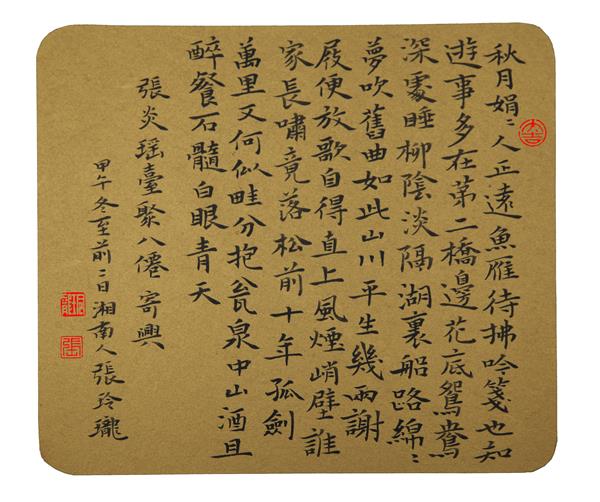 秋月娟〻人正遠魚雁待拂吟箋也知
遊事多在第二橋邊花底鴛鴦
深處睡柳陰淡隔湖裏船路綿〻
夢吹舊曲如此山川平生幾兩謝
屐便放歌自得直上風煙峭壁誰
家長嘯竟落松前十年孤劍
萬里又何似畦分抱瓮泉中山酒且
醉餐石髓白眼青天
張炎瑶臺聚八僊 寄興
甲午冬至前二日湘南人張玲瓏
張